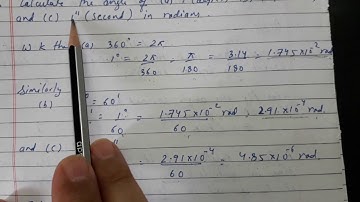 Calculate the angle of (a) 1
and (c) 1" (Second) in radians.
w k that (a) 360° = 2π
1° = 2π/360 = π/180 = 3.14/180 = 1.745×10⁻² rad
Similarly
(b) = 60'
= 1°/60 = 1.745×10⁻² rad/60 = 2.91×10⁻⁴ rad
and (c) "
= 2.91×10⁻⁴/60 = 4.85×10⁻⁶ rad.